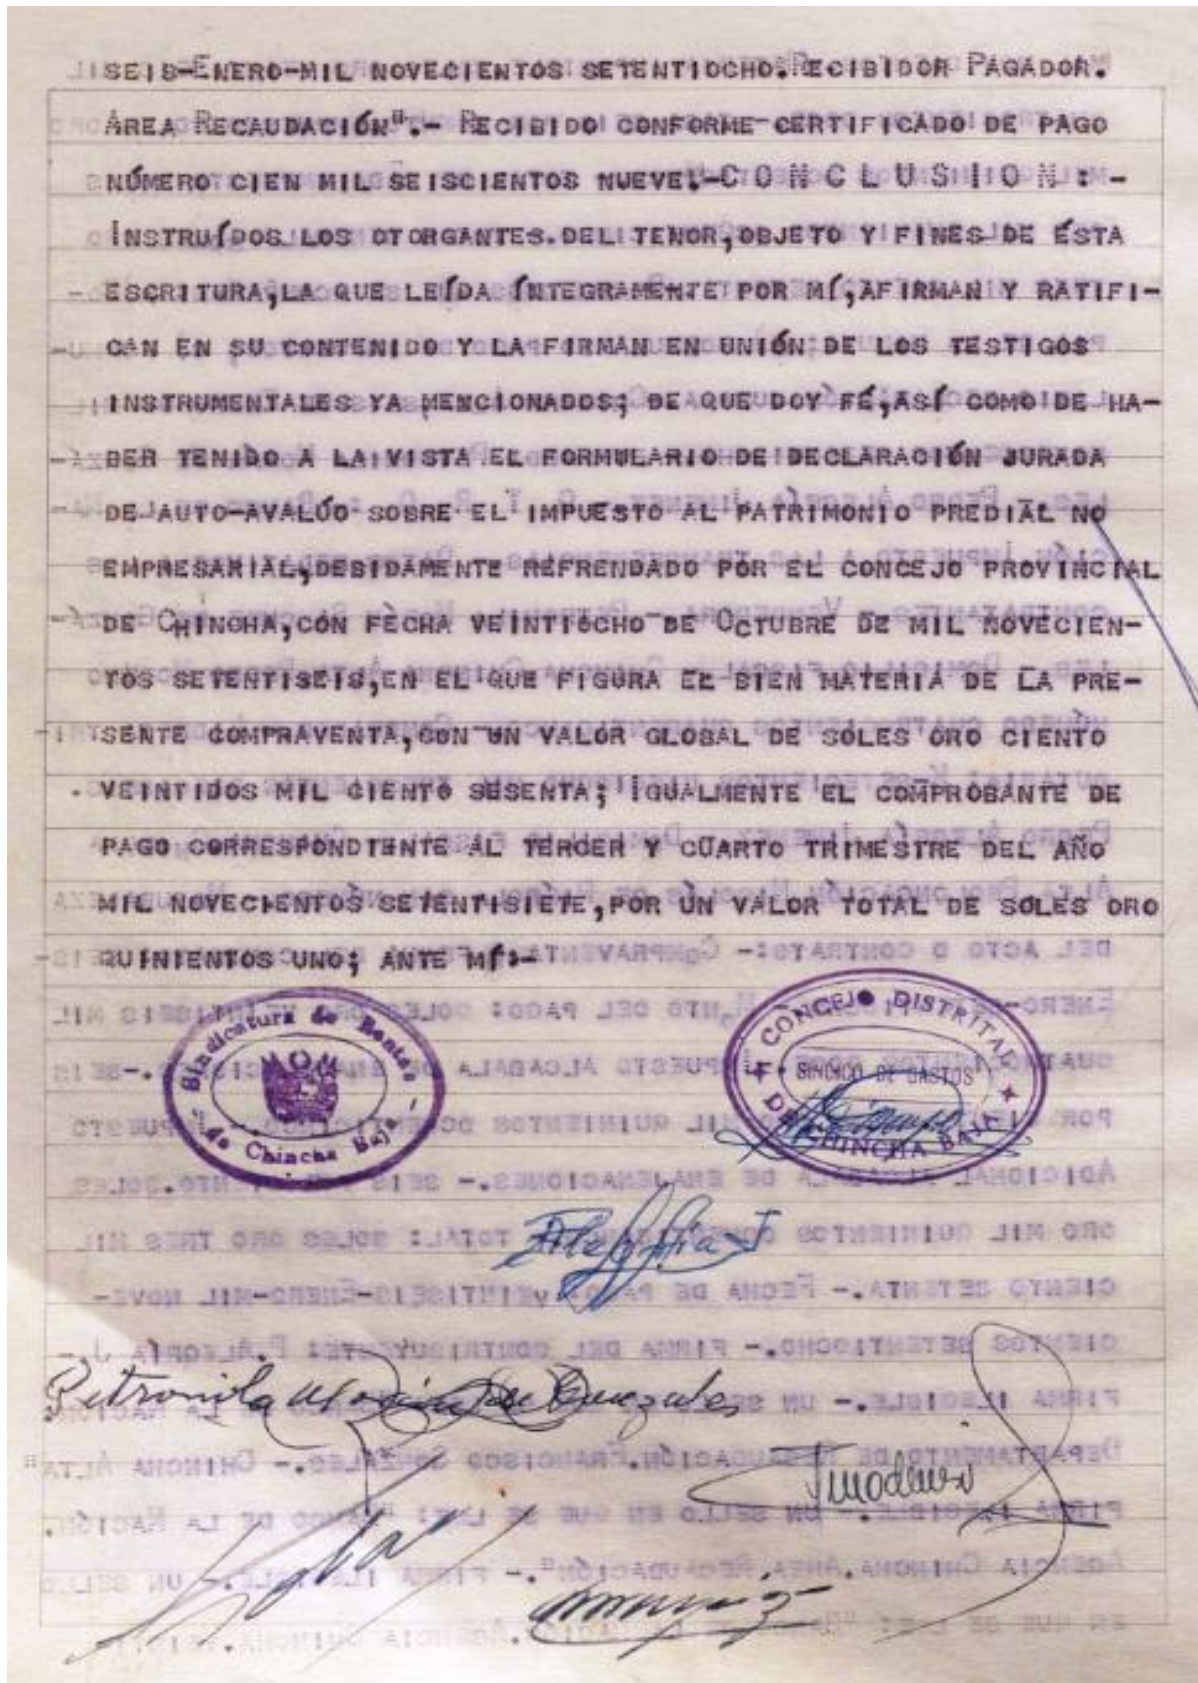 SEIS-ENERO-MIL NOVECIENTOS SETENTIOCHO.RECIBIDOR PAGADOR.
AREA RECAUDACIÓN".- RECIBIDO CONFORME CERTIFICADO DE PAGO
NÚMERO CIEN MIL SEISCIENTOS NUEVE.-C O N C L U S I O N : -
INSTRUÍDOS LOS OTORGANTES.DEL TENOR,OBJETO Y FINES DE ÉSTA
ESCRITURA,LA QUE LEÍDA ÍNTEGRAMENTE POR MÍ,AFIRMAN Y RATIFI-
CAN EN SU CONTENIDO Y LA FIRMAN EN UNIÓN DE LOS TESTIGOS
INSTRUMENTALES YA MENCIONADOS; DE QUE DOY FÉ,ASÍ COMO DE HA-
BER TENIDO A LA VISTA EL FORMULARIO DE DECLARACIÓN JURADA
DE AUTO-AVALÚO SOBRE EL IMPUESTO AL PATRIMONIO PREDIAL NO
EMPRESARIAL,DEBIDAMENTE REFRENDADO POR EL CONCEJO PROVINCIAL
DE CHINCHA,CON FÉCHA VEINTIOCHO DE OCTUBRE DE MIL NOVECIEN-
TOS SETENTISEIS,EN EL QUE FIGURA EL BIEN MATERIA DE LA PRE-
SENTE COMPRAVENTA,CON UN VALOR GLOBAL DE SOLES ORO CIENTO
VEINTIDOS MIL CIENTO SESENTA; IGUALMENTE EL COMPROBANTE DE
PAGO CORRESPONDIENTE AL TERCER Y CUARTO TRIMESTRE DEL AÑO
MIL NOVECIENTOS SETENTISIETE,POR UN VALOR TOTAL DE SOLES ORO
QUINIENTOS UNO; ANTE MÍ:-
Sindicatura de Rentas
- de Chincha Baja -
CONCEJO DISTRITAL
SINDICO DE GASTOS
DE CHINCHA BAJA
Petronila